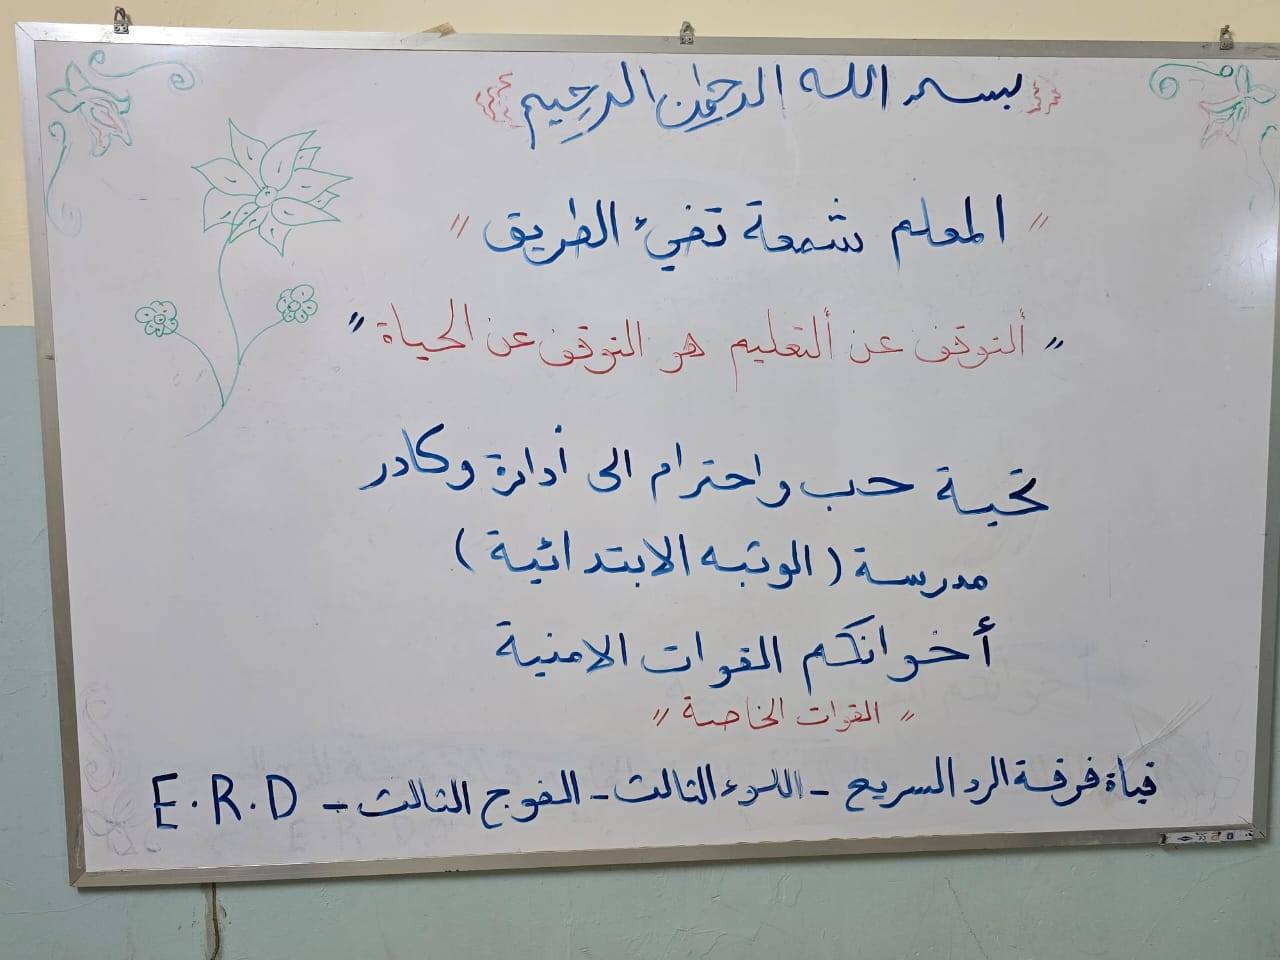 بسم الله الرحمن الرحيم
" المعلم شمعة تضيء الطريق "
" ألتوقف عن ألتعليم هو التوقف عن الحياة "
تحية حب واحترام الى أدارة وكادر
مدرسة ( الوثبه الابتدائية )
أخوانكم القوات الامنية
" القوات الخاصة "
قياة فرقة الرد السريع - اللواء الثالث - الفوج الثالث - E.R.D